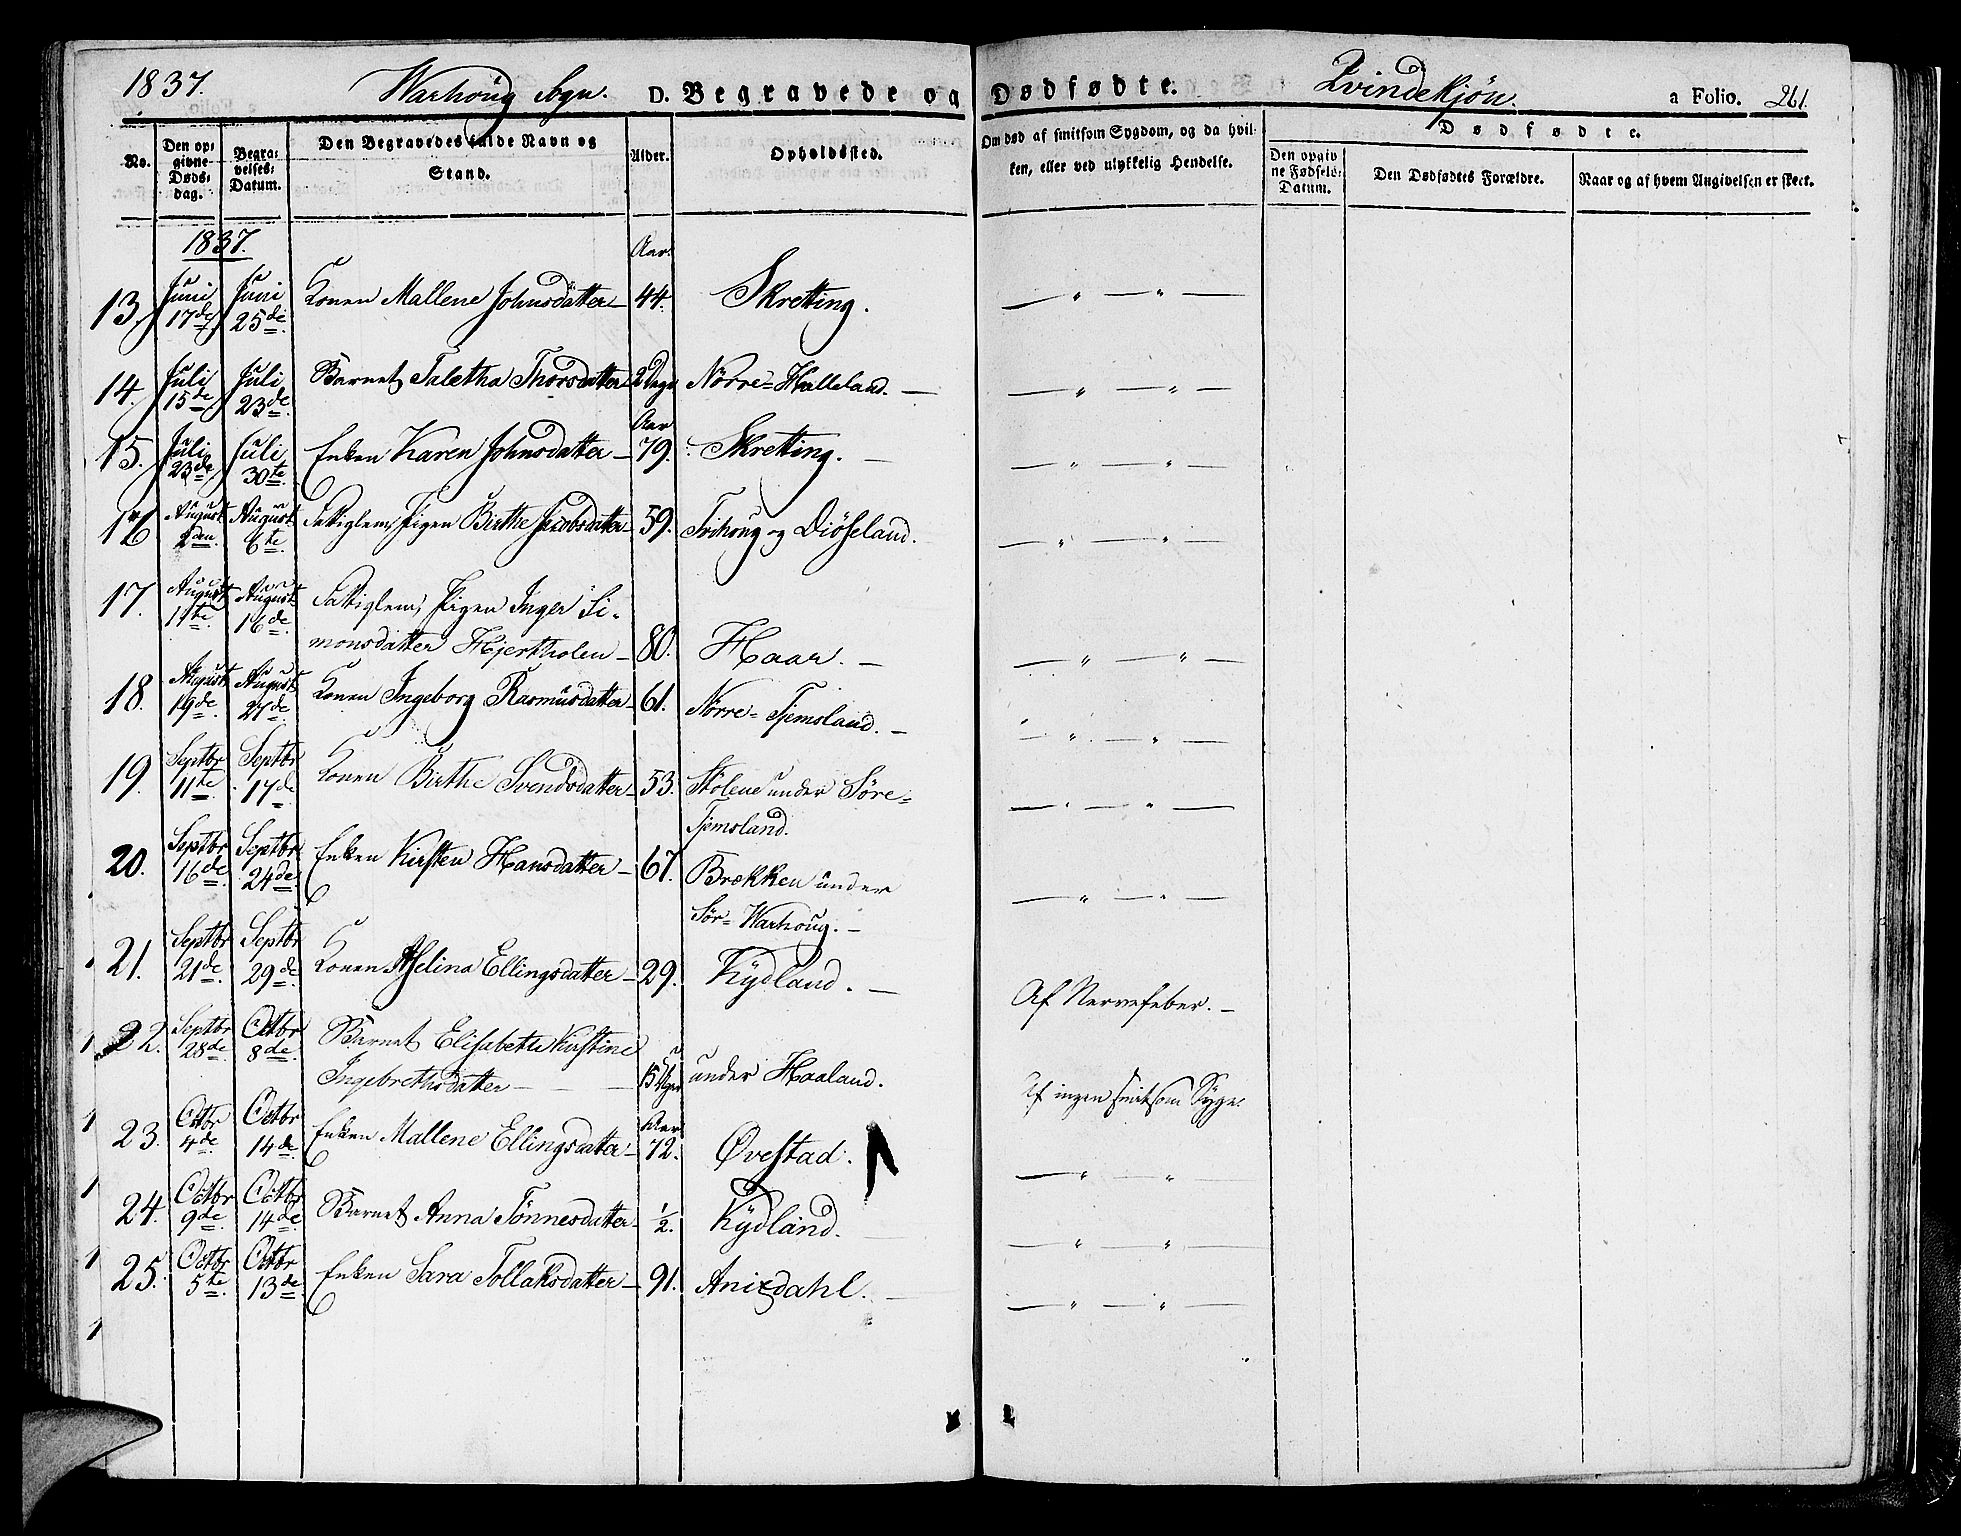 1837. Warhoug Sogn. D. Begravede og Dødfødte. Qvindekjøn. a Folio. 261.
No. Den opgivne Dødsdag. Begravelses-Datum. Den Begravedes fulde Navn og Stand. Alder. Opholdssted. Om død af smitsom Sygdom, og da hvilken, eller ved ulykkelig Hendelse. Dødfødte. Den opgivne Fødsels-Datum. Den Dødfødtes Forældre. Naar og af hvem Angivelsen er skeet.
1837. Aar.
13. Juni 17de Juni 25de Konen Mallene Johnsdatter 44. Skretting. — " — " —
14. Juli 15de Juli 23de Barnet Taletha Thorsdatter 2 Dage Nörre-Halleland. — " — " —
Aar
15. Juli 23de Juli 30te Enken Karen Johnsdatter 79. Skretting. — " — " —
16 August 2den August 6te Pigen Birthe Jacobsdatter 59. og Diöseland. — " — " —
17. August 11te August 16de Pigen Inger Si-
monsdatter Hjertholen 80. Haar. — " — " —
18. August 19de August 27de Konen Ingeborg Rasmusdatter 61. Nörre-Tjemsland. — " — " —
19. Septbr 11te Septbr 17de Konen Birthe Svendsdatter 53. Stölene under Söre-
Tjemsland. — " — " —
20. Septbr 16de Septbr 24de Enken Kirsten Hansdatter 67. Brekken under
Sør-Warhoug. — " — " —
21. Septbr 21de Septbr 29de Konen Aselina Ellingsdatter 29. Kydland. Af Nervefeber.
22. Septbr 28de Octbr 8de Barnet Elisabeth Kirstine
Ingebrethsdatter 15 Uger under Haaland. Af ingen smitsom Syge.
Aar
23. Octbr 4de Octbr 14de Enken Mallene Ellingsdatter 72. Øvestad. — " — " —
24. Octbr 9de Octbr 14de Barnet Anna Tönnesdatter 1/2. Kydland. — " — " —
25. Octbr 5te Octbr 13de Enken Sara Tollaksdatter 91. Anisdahl. — " — " —